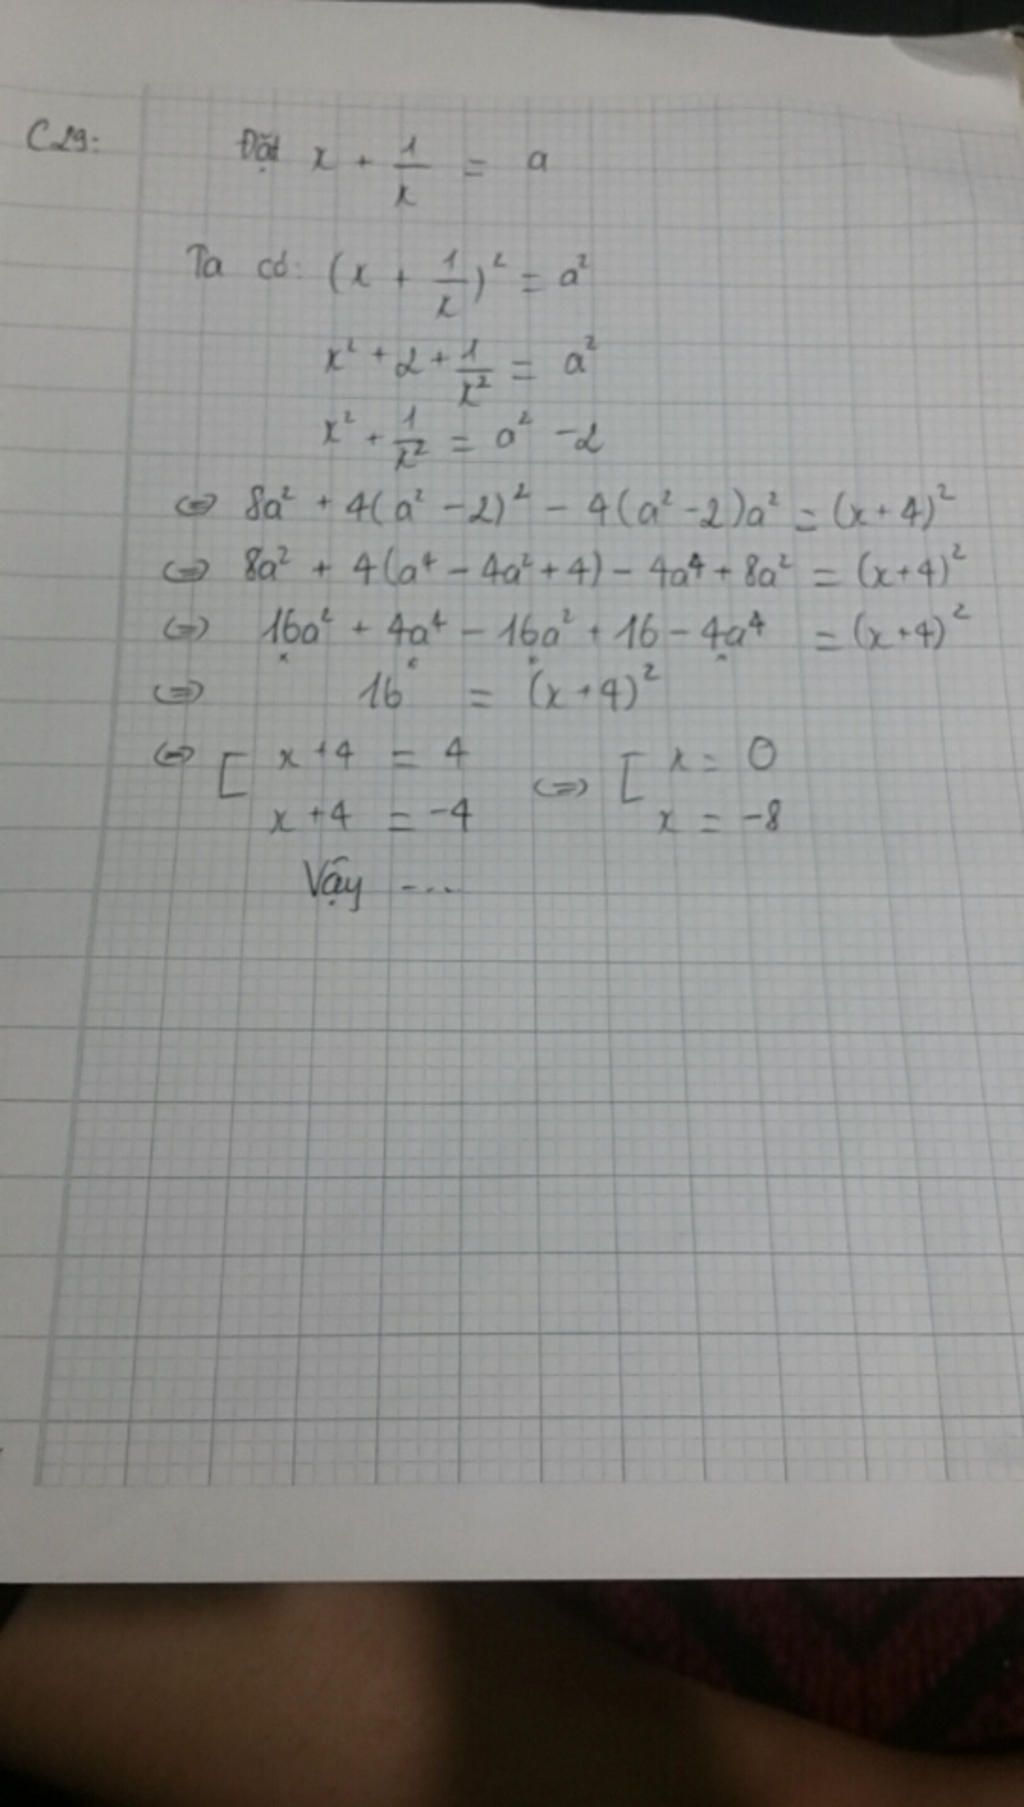 C29: Đặt x + 1/x = a
Ta có: (x + 1/x)² = a²
x² + 2 + 1/x² = a²
x² + 1/x² = a² - 2
⇔ 8a² + 4(a² - 2)² - 4(a² - 2)a² = (x + 4)²
⇔ 8a² + 4(a⁴ - 4a² + 4) - 4a⁴ + 8a² = (x+4)²
⇔ 16a² + 4a⁴ - 16a² + 16 - 4a⁴ = (x+4)²
⇔ 16 = (x+4)²
⇔ [ x+4 = 4 ⇔ [ x = 0
x+4 = -4 x = -8
Vậy ----